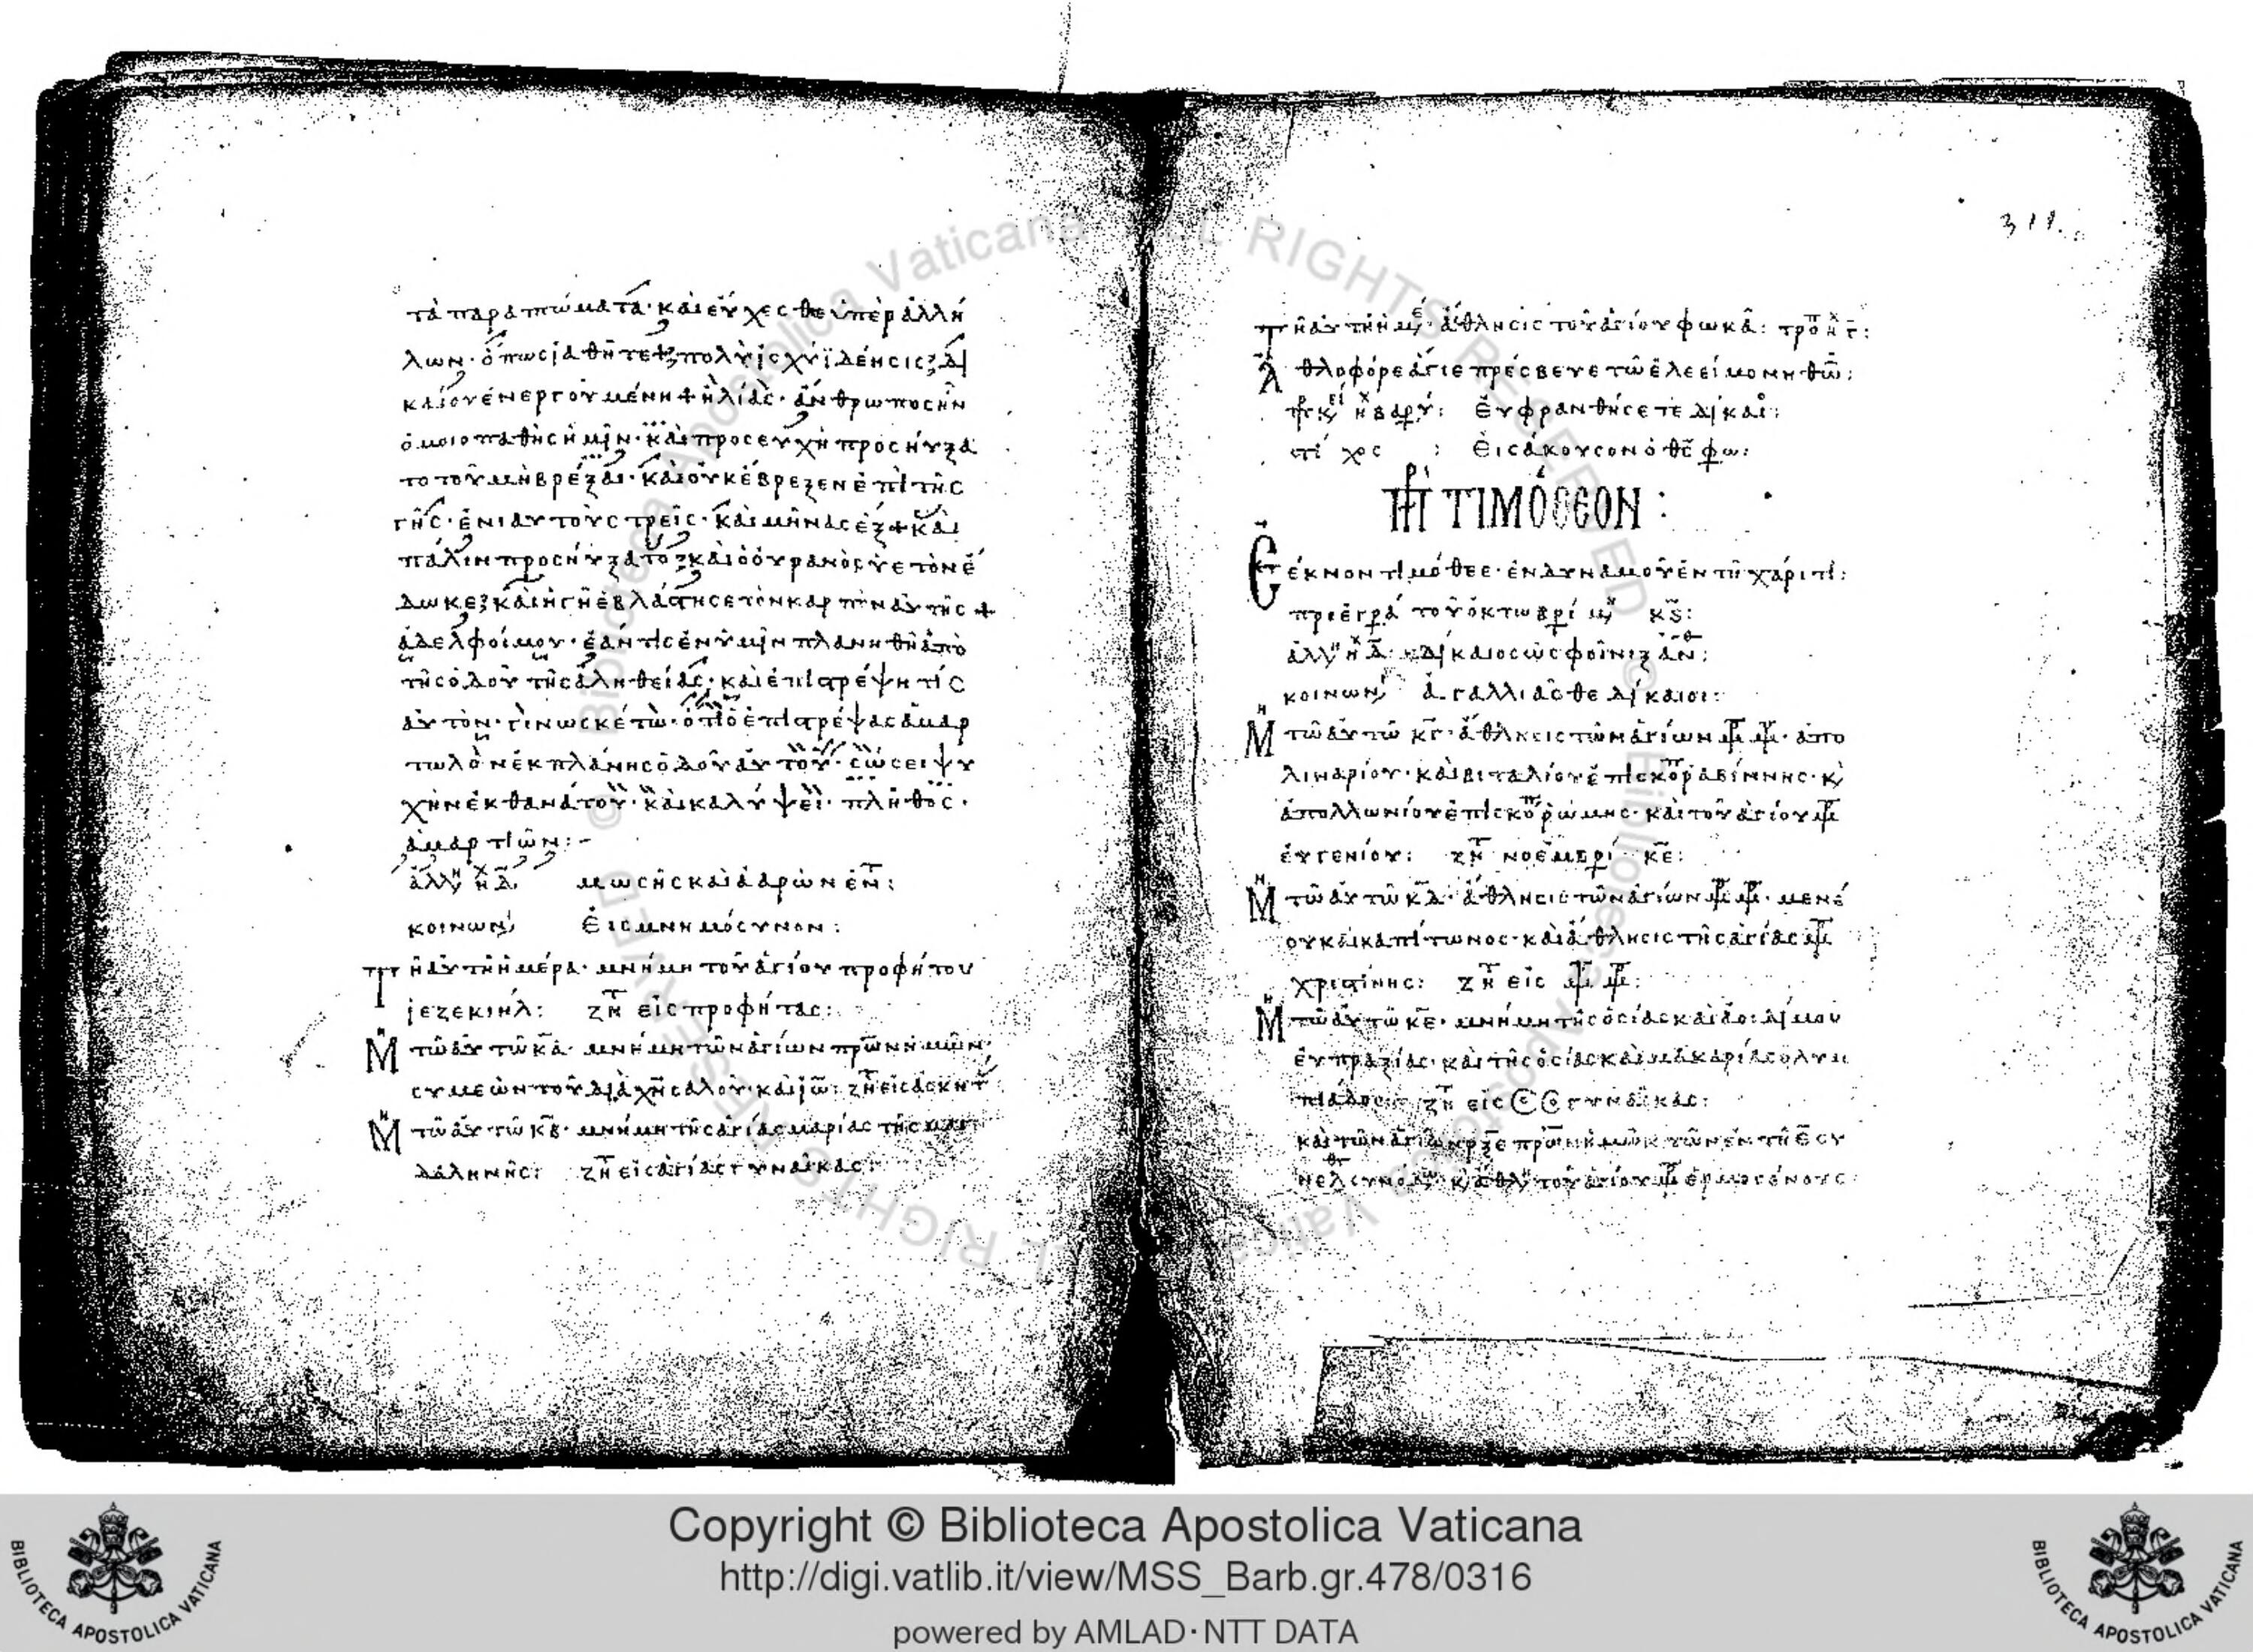 τὰ παραπτώματα· καὶ εὔχεσθε ὑπὲρ ἀλλή
λων· ὅπως ἰαθῆτε πολὺ ἰσχύϊ δέησις δι
καίου ἐνεργουμένη + ἠλίας· ἄνθρωπος ἦν
ὁμοιοπαθὴς ἡμῖν· καὶ προσευχῇ προσηύξα
το τοῦ μὴ βρέξαι· καὶ οὐκ ἔβρεξεν ἐπὶ τῆς
γῆς· ἐνιαυτοὺς τρεῖς· καὶ μῆνας ἕξ + καὶ
πάλιν προσηύξατο καὶ ὁ οὐρανὸς ὑετὸν ἔ
δωκε καὶ ἡ γῆ ἐβλάστησε τὸν καρπὸν αὐτῆς +
ἀδελφοί μου· ἐάν τις ἐν ὑμῖν πλανηθῆ ἀπὸ
τῆς ὁδοῦ τῆς ἀληθείας· καὶ ἐπιστρέψη τίς
αὐτόν· γινωσκέτω· ὅτι ὁ ἐπιστρέψας ἁμαρ
τωλὸν ἐκ πλάνης ὁδοῦ αὐτοῦ· σώσει ψυ
χὴν ἐκ θανάτου· καὶ καλύψει· πλῆθος·
ἁμαρτιῶν:-
ἀλλη ἦχ δ̄ μωσῆς καὶ ἀαρὼν ἐν τ:
κοινων εἰς μνημόσυνον:
τῆ αὐτῆ ἡμέρα· μνήμη τοῦ ἁγίου προφήτου
ἰεζεκιήλ: ζητ εἰς προφήτας:
Μη τῶ αὐτῶ κα· μνήμη τῶν ἁγίων πρων ἡμῶν·
συμεὼν τοῦ διὰ χν σαλοῦ· καὶ ιω: ζητ εἰς ἀσκητ:
Μη τῶ αὐτῶ κβ· μνήμη τῆς ἁγίας μαρίας τῆς μαγ
δαληνῆς: ζητ εἰς ἁγίας γυναῖκας:
311.
τῆ αὐτῆ ἡμε· ἄθλησις τοῦ ἁγίου φωκᾶ: τροπ ἦχ γ:
Ἀθλοφόρε ἅγιε πρέσβευε τῶ ἐλεείμονη θω:
πρκει ἦχ βαρύ: Εὐφρανθήσετε δίκαι:
στίχος : Εἰσάκουσον ὁ θς φω:
πρ ΤΙΜΟΘΕΟΝ:
Τέκνον τιμόθεε· ἐνδυναμοῦ ἐν τῆ χάριτι:
προεγρά τοῦ ὀκτωβρί μη κς:
ἀλλη ἦχ δ· δίκαιος ὡς φοῖνιξ ἀνθ:
κοινων ἀγαλλιᾶσθε δίκαιοι:
Μη τῶ αὐτῶ κγ· ἄθλησις τῶν ἁγίων μρ μρ· ἀπο
λιναρίου· καὶ βιταλίου ἐπισκοπ ραβίννης· κ
ἀπολλωνίου ἐπισκοπ ῥώμης· καὶ τοῦ ἁγίου μρ
εὐγενίου: ζητ νοεμβρί κε:
Μη τῶ αὐτῶ κδ· ἄθλησις τῶν ἁγίων μρ μρ· μενέ
ου καὶ καπίτωνος· καὶ ἄθλησις τῆς ἁγίας μρ
χριστίνης: ζητ εἰς μρ μρ:
Μη τῶ αὐτῶ κε· μνήμη τῆς ὁσίας καὶ ἀοιδίμου
εὐπραξίας· καὶ τῆς ὁσίας καὶ μακαρίας ὀλυμ
πιάδος: ζητ εἰς γυναῖκας:
καὶ τῶν ἁγίων ρξε πρων ἡμῶν τῶν ἐν τῆ ε συ
κ ἄθλ τοῦ ἁγίου μρ ἑρμογένους
Copyright © Biblioteca Apostolica Vaticana
http://digi.vatlib.it/view/MSS_Barb.gr.478/0316
powered by AMLAD·NTT DATA
BIBLIOTECA APOSTOLICA VATICANA
BIBLIOTECA APOSTOLICA VATICANA